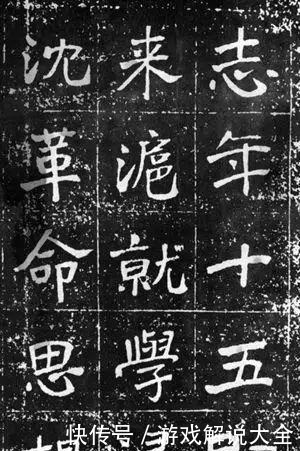 志年十五
来滬就學
沈革命思
快传号/游戏解说大全